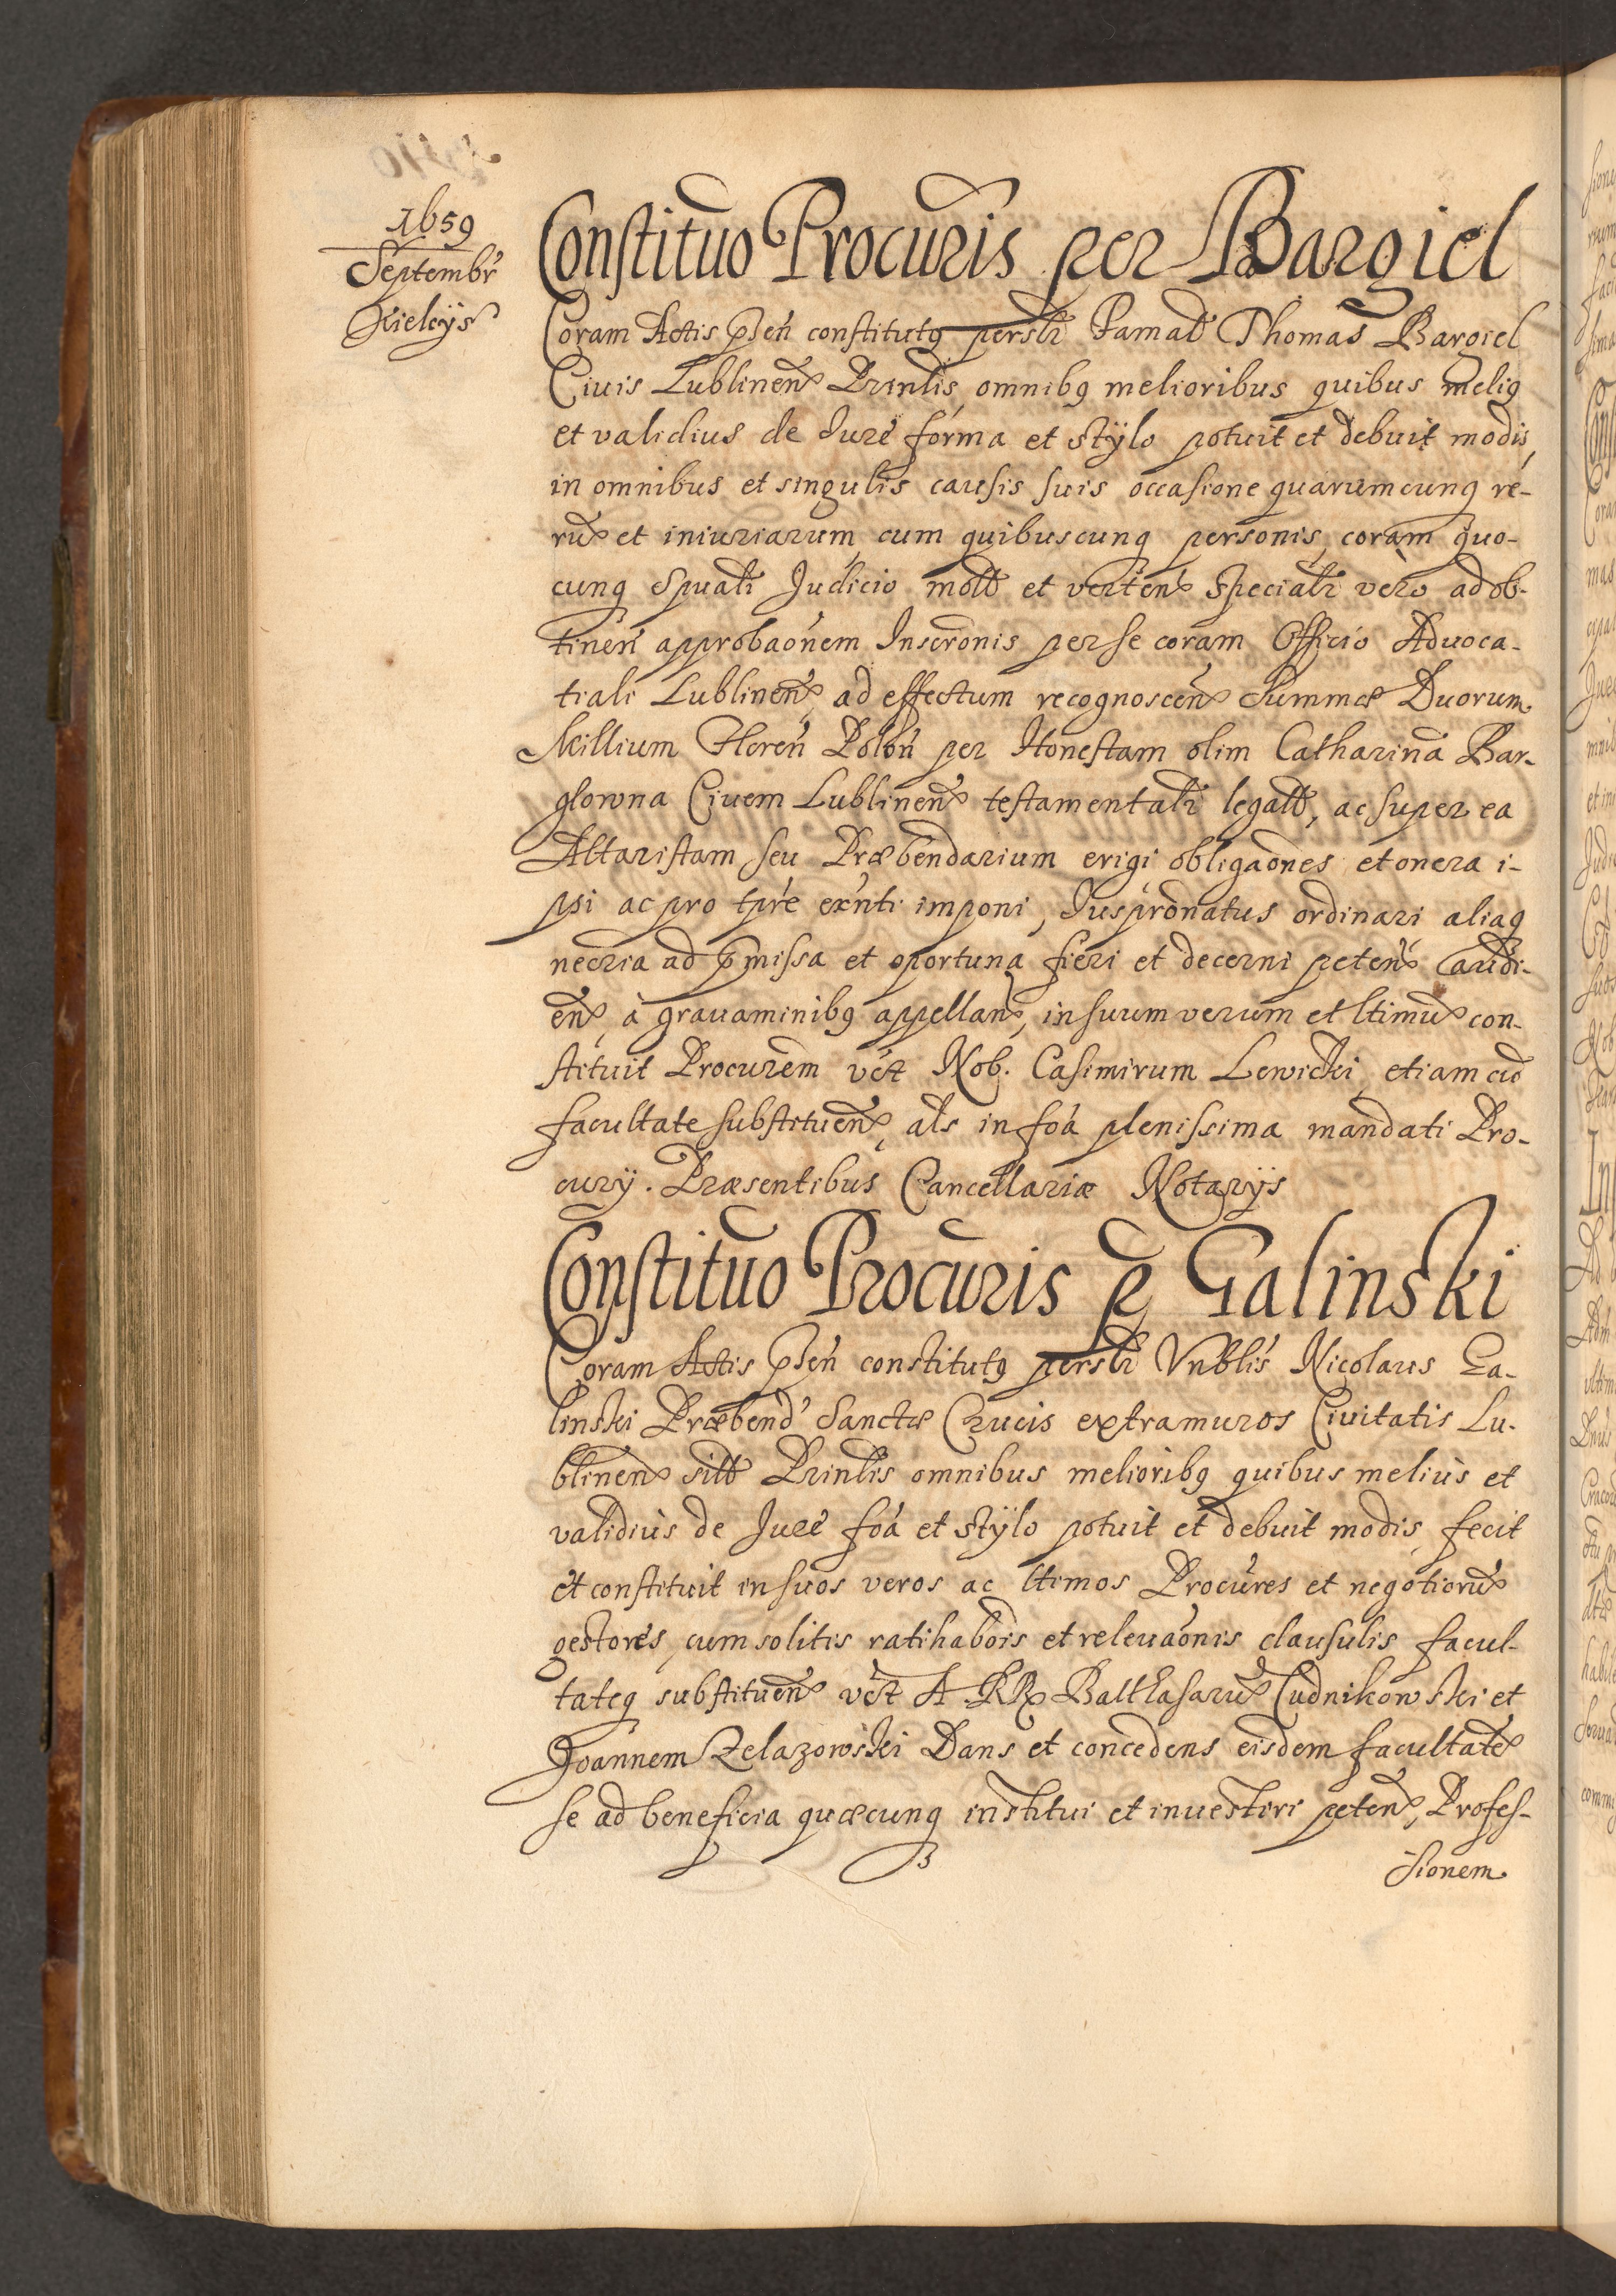 1659
Septembr
Kielcys
Constituo Procuris per Bargiel
Coram Actis pñsen constitutq persłr Famat Thomas Bargiel
Ciuis Lublinen Prinlis omnibq melioribus quibus meliq
et validius de Jure forma et stÿlo potuit et debuit modis,
in omnibus et singulis causis suis occasione quarumcunq re-
rũ et iniuriarum, cum quibuscunq personis, coram quo-
cunq spuali Judicio mott et verten speciałr vero ad ob-
tinen approbaonem Inscronis per se coram Officio Aduoca-
tiali Lublinen, ad effectum recognoscen Summæ Duorum
Millium Floren Polon per Honestam olim Catharinã Bar-
głowna Ciuem Lublinen testamentałr legatt, ac super ea
Altaristam seu Præbendarium erigi obligaones et onera i-
psi ac pro tpre exnti imponi, Juspronatus ordinari aliaq
necria ad pmissa et oportuna fieri et decerni peten audi-
en, à grauaminibq appellan, in suum verum et ltimũ con-
stituit Procurem vct Nob. Casimirum Lewicki, etiam cũ
facultate substituen, als in foa plenissima mandati Pro-
curÿ. Præsentibus Cancellariæ Notarÿs
Constituo Procuris p Galinski
Coram Actis pñsen constitutq persłr Vnblis Nicolaus Ga-
linski Præbend Sanctæ Crucis extra muros Ciuitatis Lu-
blinen sitt Prinlis omnibus melioribq quibus melius et
validius de Jure foa et stÿlo potuit et debuit modis, fecit
et constituit in suos veros ac ltimos Procures et negotiorũ
gestores, cum solitis ratihabois et releuaonis clausulis facul-
tateq substituen vct A RR Balthasarũ Cudnikowski et
Joannem Zelazowski Dans et concedens eisdem facultatẽ
se ad beneficia quæcunq institui et inuestiri peten, Profes-
sionem